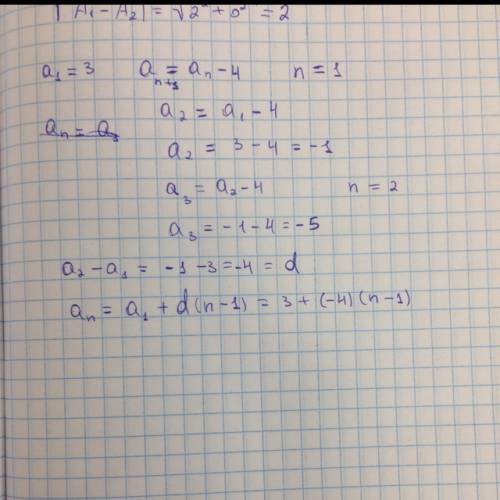 |A₁ - A₂| = √2² + 0² = 2
a₁ = 3 aₙ₊₁ = aₙ - 4 n = 1
a₂ = a₁ - 4
a₂ = 3 - 4 = -1
a₃ = a₂ - 4 n = 2
a₃ = -1 - 4 = -5
a₂ - a₁ = -1 - 3 = -4 = d
aₙ = a₁ + d(n-1) = 3 + (-4)(n-1)